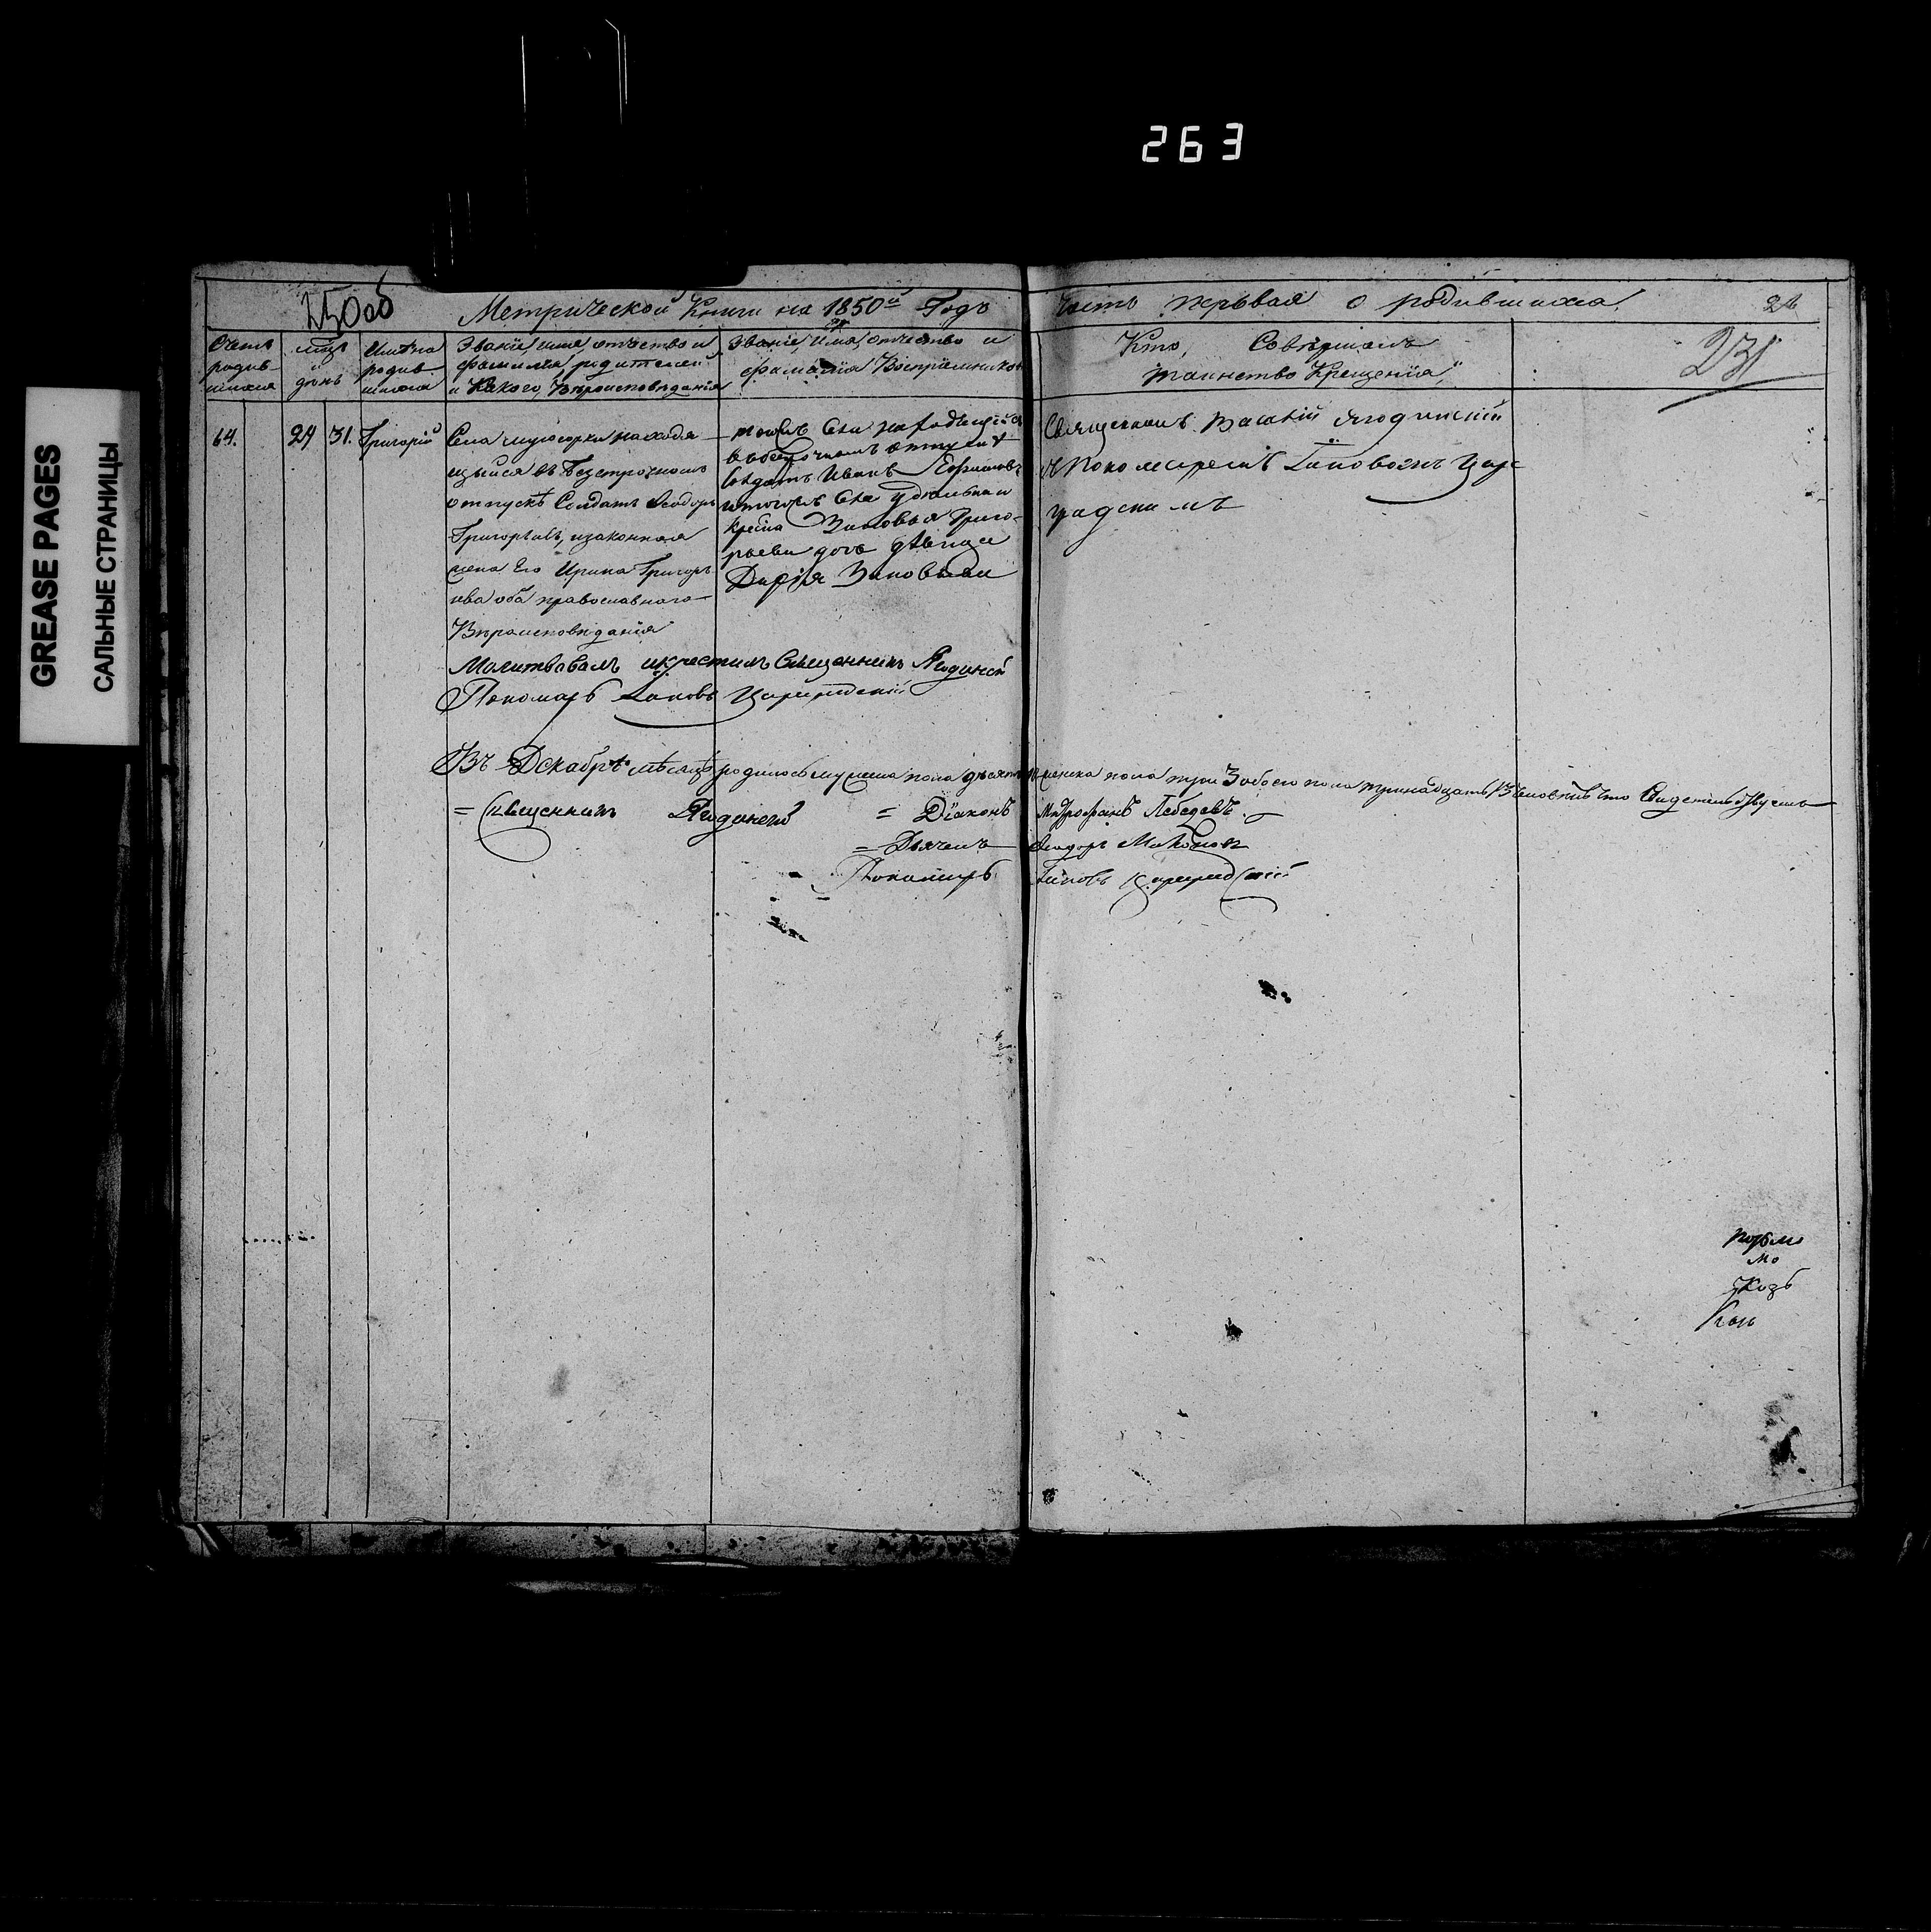 263
GREASE PAGES
САЛЬНЫЕ СТРАНИЦЫ
Метрической Книги на 1850й Годъ
Часть первая о родившихся
231
Счетъ родив-шихся
мцъ и день
Имена родив-шихся
Званіе, имя, отчество и
фамилія родителей
и Какого Вѣроисповѣданія
Званіе, Имя, отчество и
фамилія Воспріемниковъ
Кто, Совершалъ
таинство Крещенія
64.
24
31.
Григорій
Села находя-
щыйся въ Безсрочномъ
отпускѣ Солдатъ Ѳеодоръ
Григорьевъ, и законная
жена Его Ирина Григорь-
ева оба православного
Вѣроисповѣданія
тогожъ Села находящійся
в отпуску
Солдатъ Иванъ
и тогожъ Села удельнаго
Крестна Зиновья Григо-
рьева дочь дѣвица
Дарія Зиновьева
Священникъ Ягодинскій
съ Пономаремъ Іаковомъ Цар-
градскимъ
Молитвовалъ и крестилъ Священникъ Ягодинскій
Пономарь Іаковъ Цареградскій
Въ Декабрѣ мѣсяцѣ родилось мужеска пола десять женска пола три Обоего пола тринадцать Въ чемъ свидетельствуемъ
= Священникъ Ягодинскій = Діаконъ Митрофанъ Лебедевъ
= Дьячекъ Ѳеодоръ
Пономарь Іаковъ Цареградскій